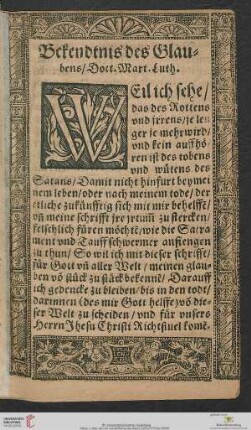 Bekendtnis des Glau-
bens/ Doct. Mart. Luth.
WEil ich sehe/
das des Rottens
vnd jrrens/ je len
ger je mehr wird/
vnd kein auffhö
ren ist des tobens
vnd wütens des
Satans/ Damit nicht hinfurt bey mei
nem leben/ oder nach meinem tode/ der
etliche zukünfftig sich mit mir behelffe/
vñ meine schrifft jre jrtum̃ zu stercken/
felschlich füren möcht/ wie die Sacra
ment vnd Tauff schwermer anfiengen
zu thun/ So wil ich mit dieser schrifft/
für Gott vñ aller Welt/ meinen glau
ben võ stück zu stück bekennẽ/ Darauff
ich gedencke zu bleiben/ bis in den todt/
darinnen (des mir Gott helffe) võ die-
ser Welt zu scheiden/ vnd für vnsers
Herrn Jhesu Christi Richtstuel komẽ.